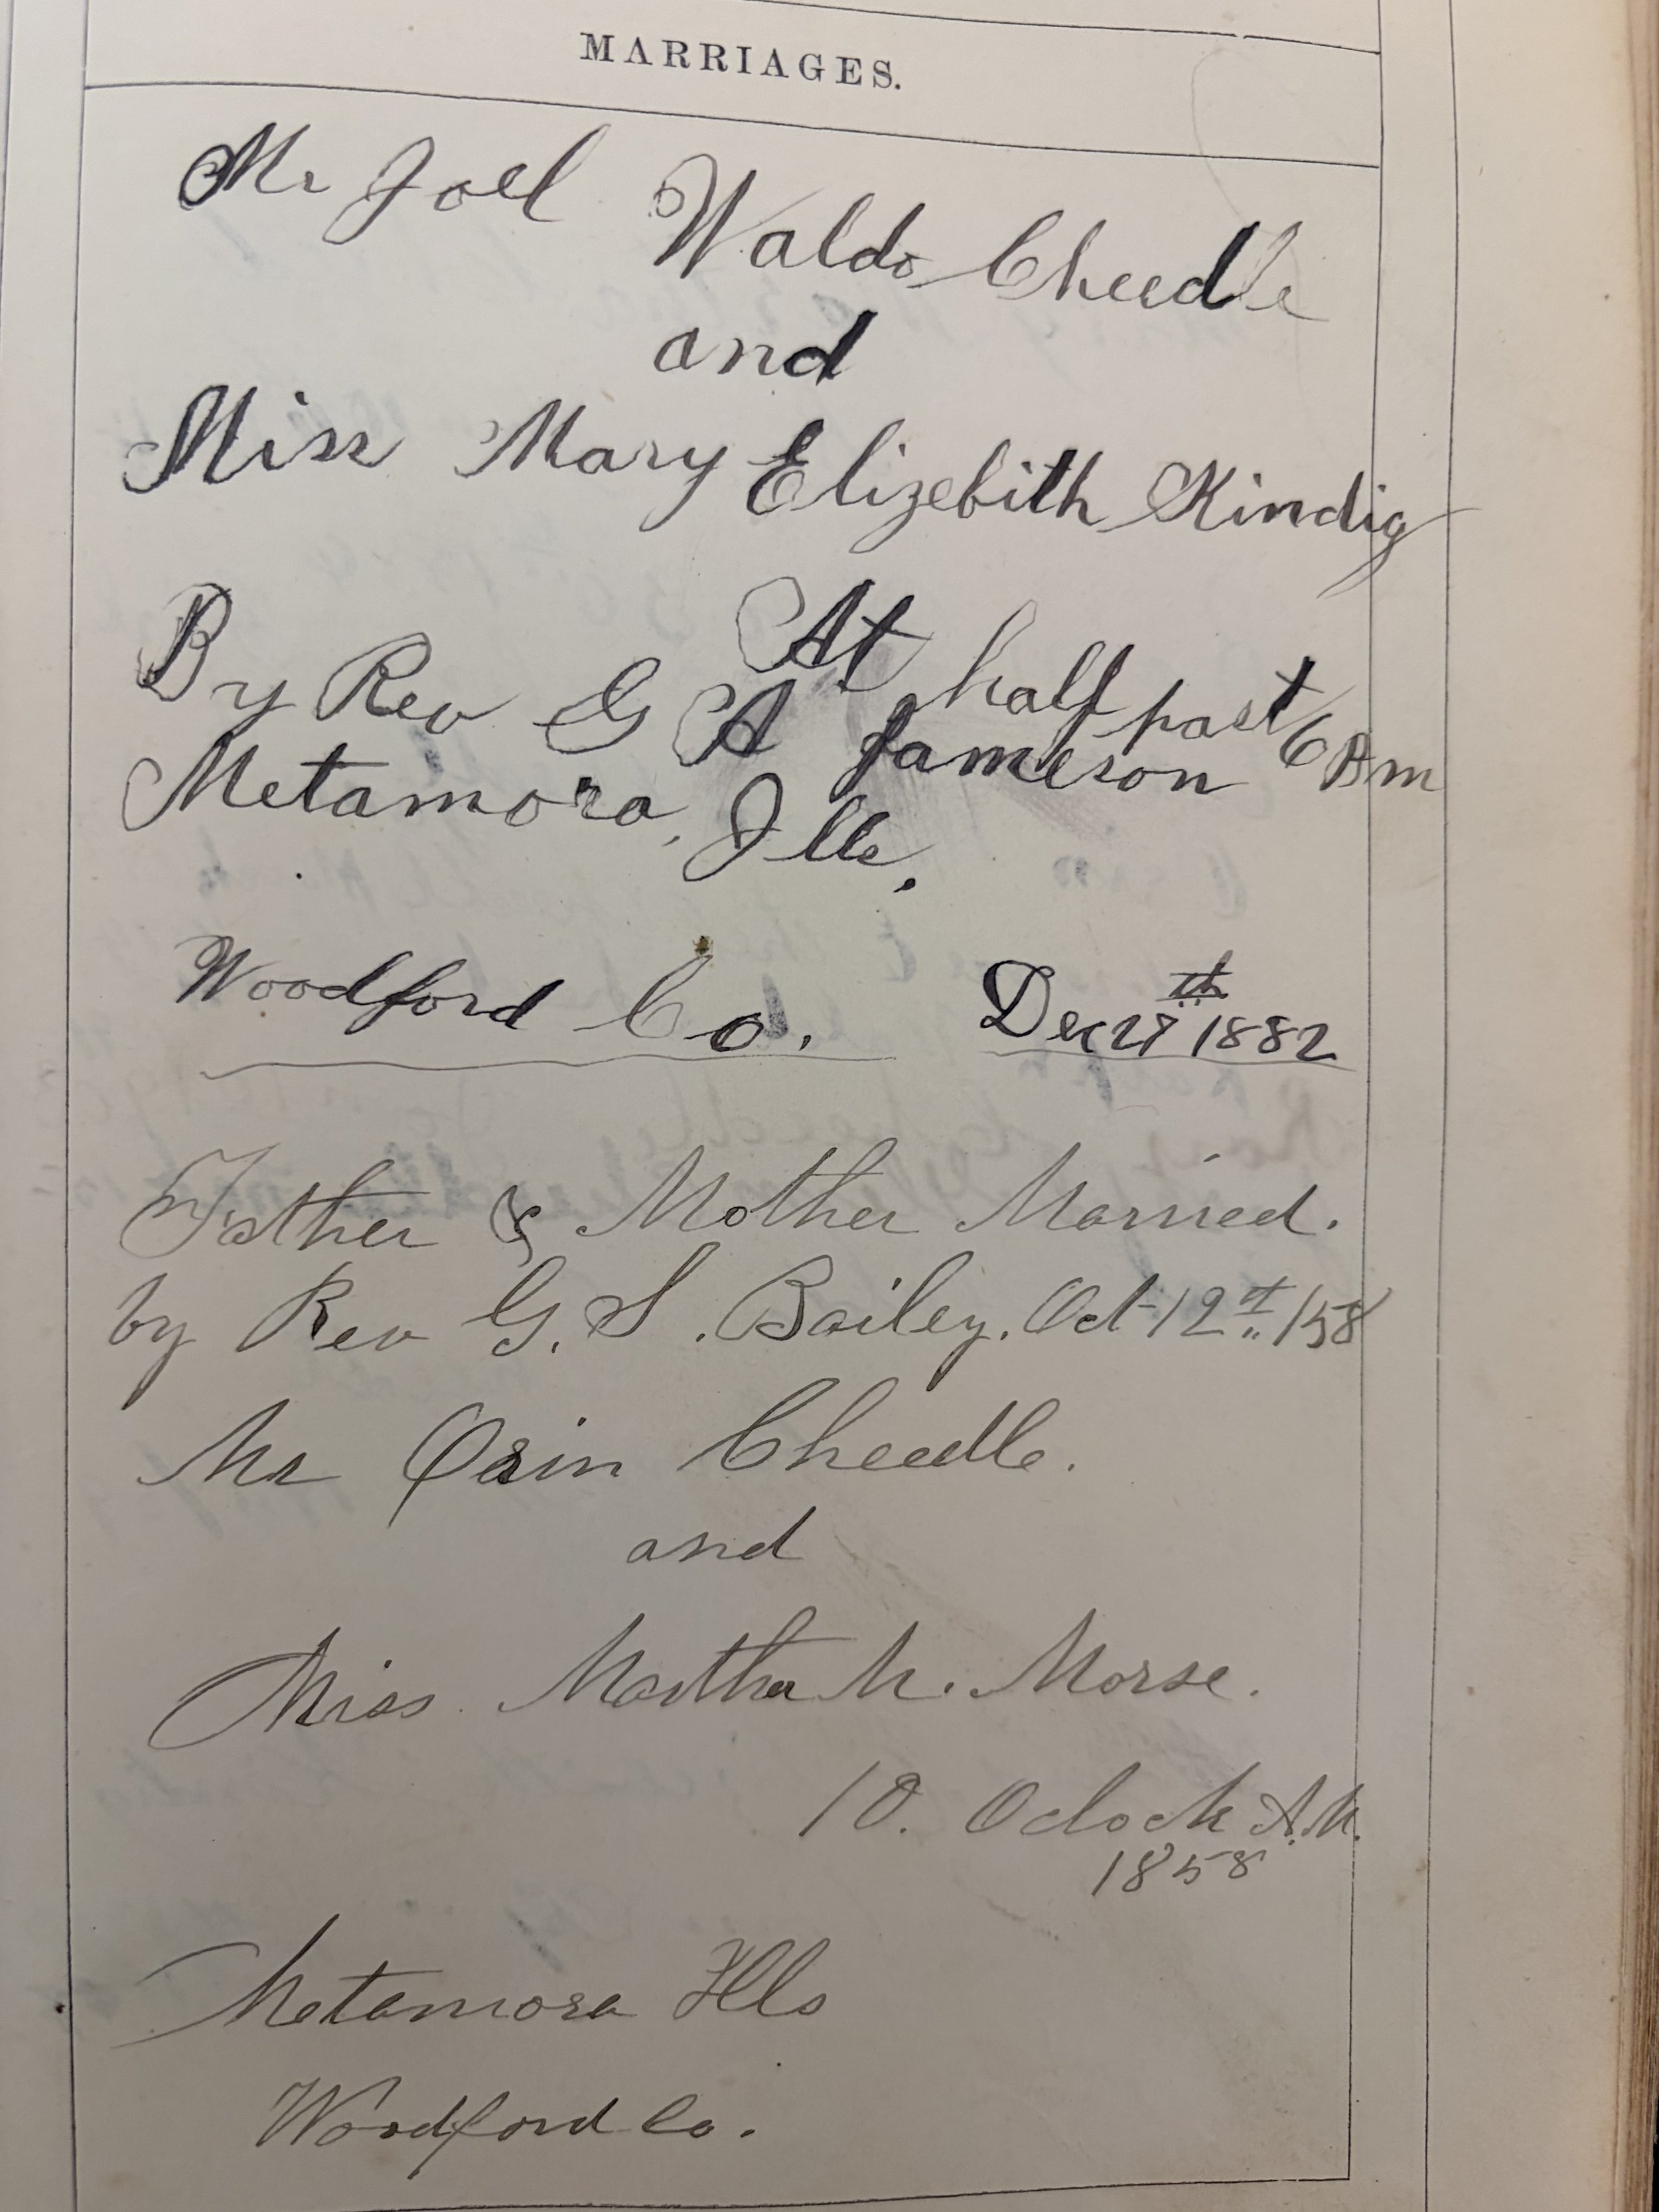 MARRIAGES.
Mr Joel Waldo Cheedle
and
Miss Mary Elizebith Kindig
At half past 6 Pm
By Rev G A Jameson
Metamora, Ills.
Woodford Co. Dec 28th 1882
Father & Mother Married.
by Rev G. S. Bailey. Oct 12th /58
Mr Orin Cheedle.
and
Miss Martha M. Morse.
10. Oclock A.M.
1858
Metamora Ills
Woodford Co.